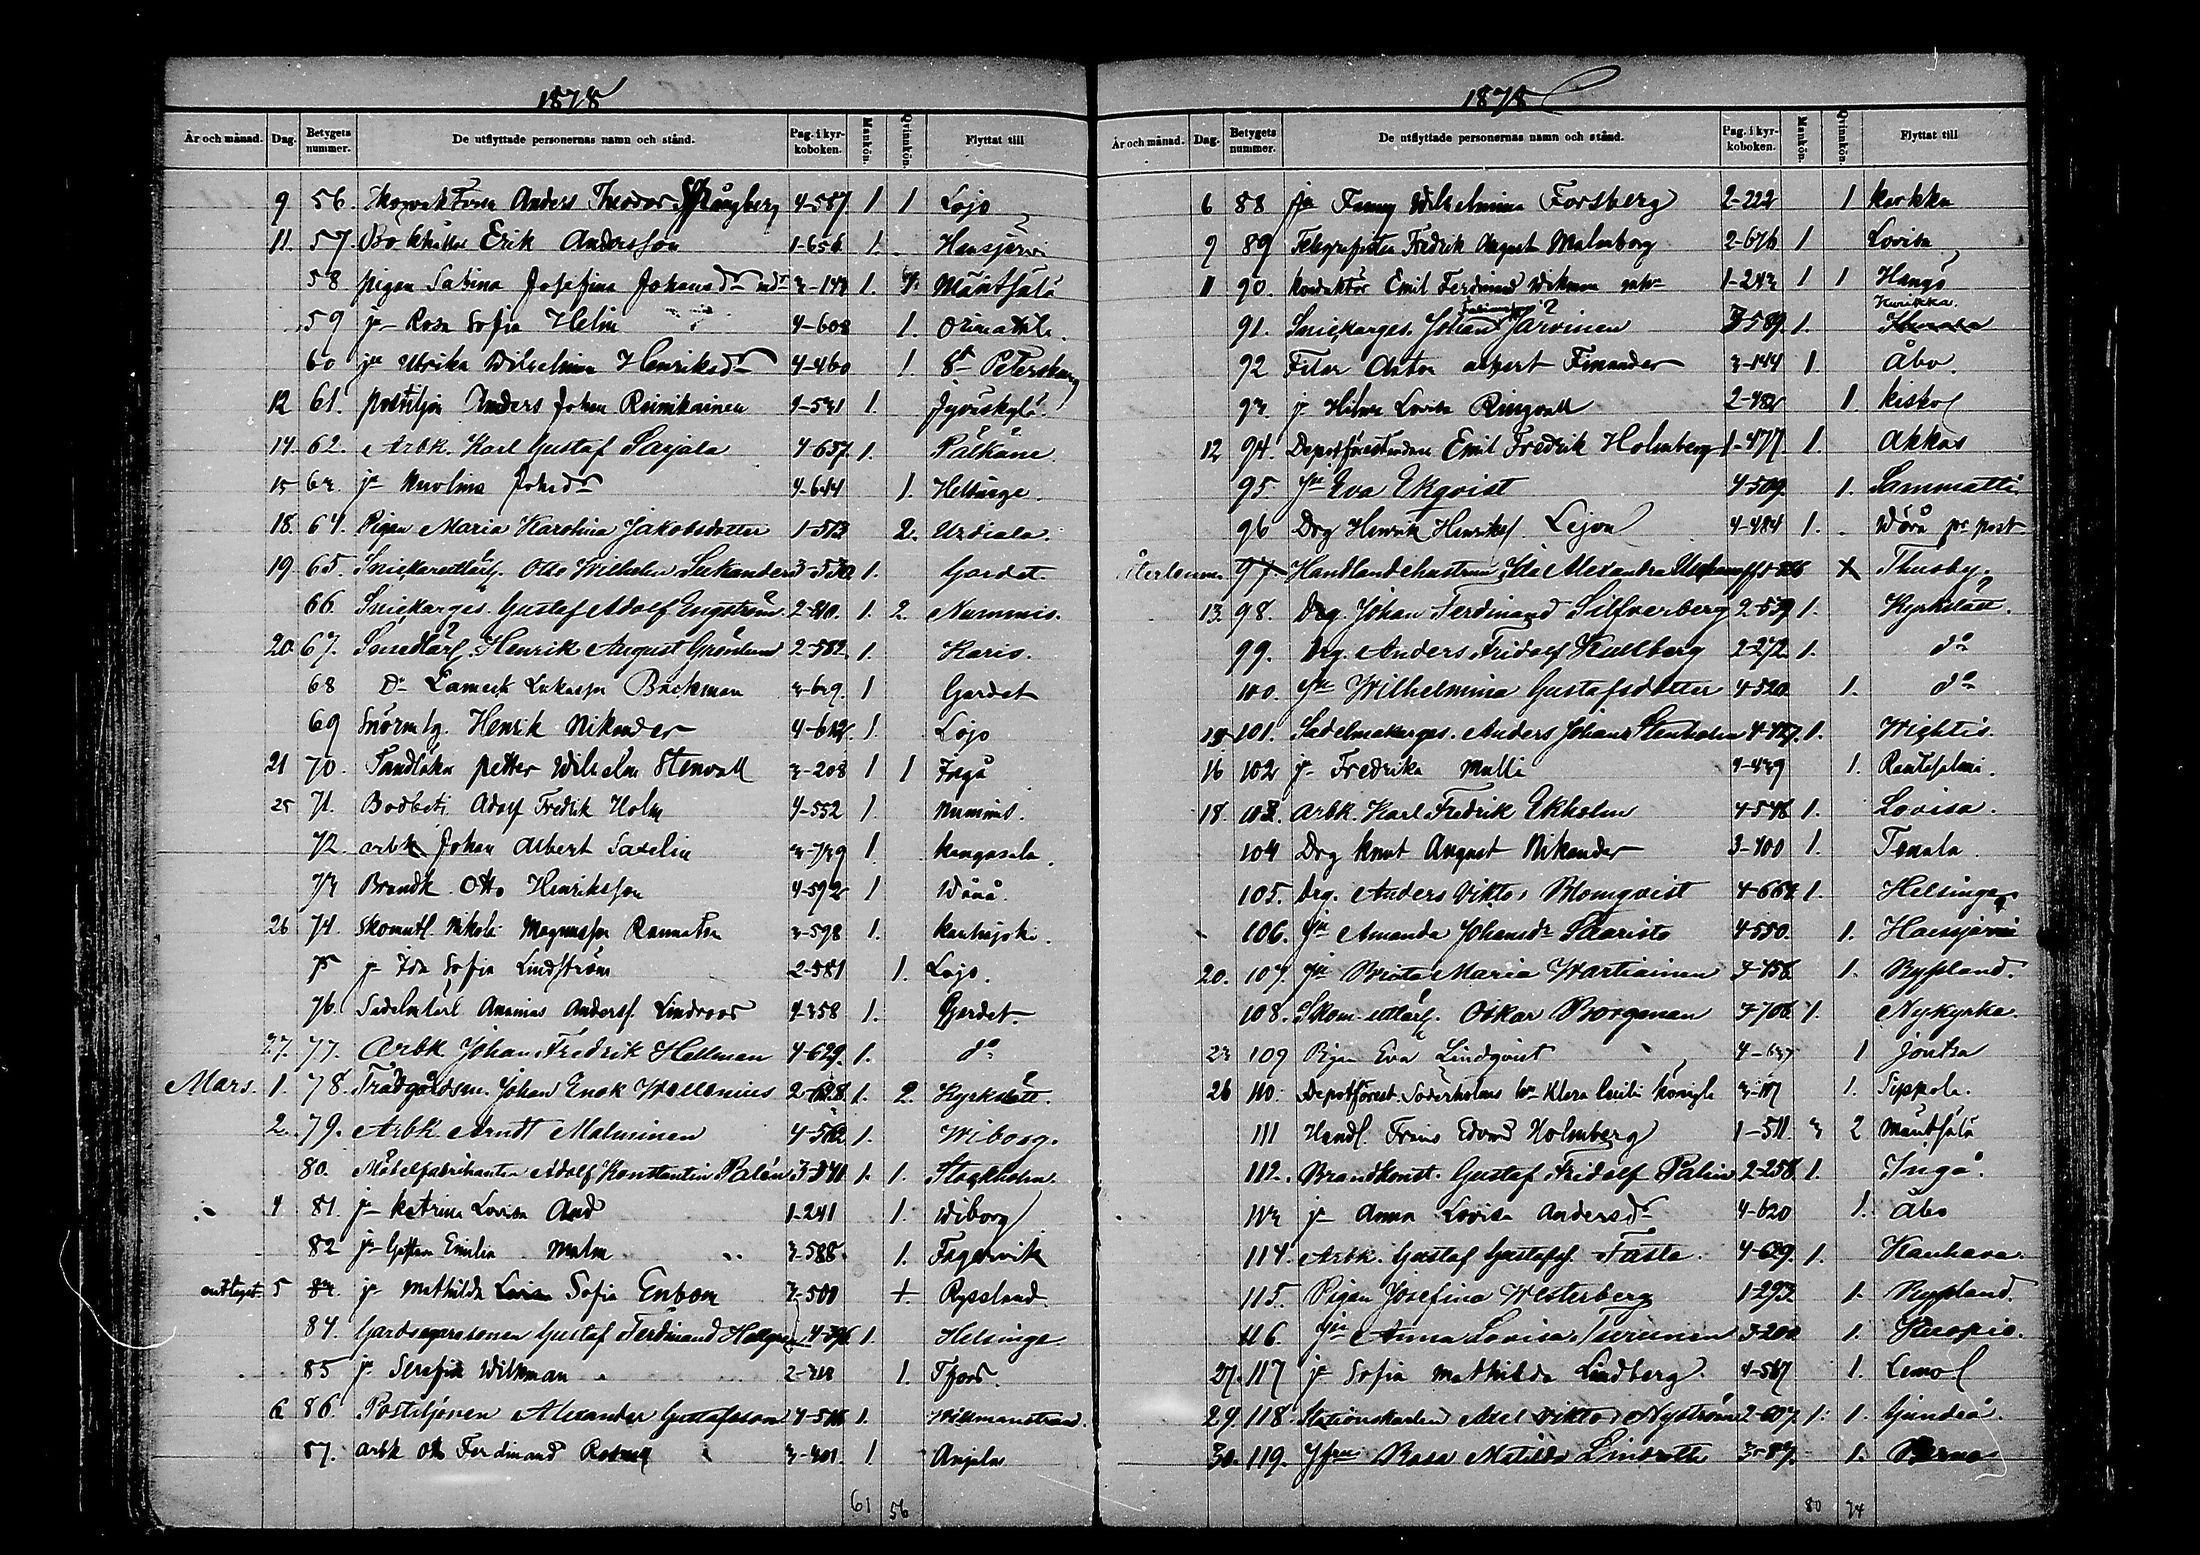 1878
År och månad. Dag. Betygets nummer. De utflyttade personernas namn och stånd. Pag. i kyrkoboken. Mankön. Qvinnkön. Flyttat till
9 56. Anders Theodor Spångberg 4-587 1 1 Lojo
11. 57. Bokhållar Erik Andersson 1-656 1. Hausjervi
58 pigan Sabina Josefina Johansdr 3-144 1. Mäntsälä
59 jr Rosa Sofia Helin 4-608 1. Orimattila
60 jr Ulrika Wilhelmina Henriksdr 4-460 1. St Petersburg
12 61. postiljon Anders Johan Rinikainen 4-531 1. Jyväskylä
14. 62. Arbk. Karl Gustaf Sarjala 4-657. 1. Pälkäne
15 63. jr Karolina Johsdr 4-644 1. Helsinge.
18. 64. Pigan Maria Karolina Jakobsdotter 1-513 2. Urdiala.
19. 65. Snickarelärl. Otto Wilhelm Lukander 3-530 1. Gardet.
66. Snickarges. Gustaf Adolf Engström 2-310. 1. 2. Nummis.
20. 67. Smedlärl. Henrik August Grönlund 2-582 1. Karis.
68 Do Lamech Lukasson Backman 3-639. 1 Gardet
69 Henrik Nikander 4-612 1. Lojo
21 70. Tandläk petter Wilhelm Stenvall 3-208 1 1 Ingå
25 71. Bodbetj Adolf Fredrik Holm 4-552 1. Nummis.
72. arbk Johan Albert Savelin 3-739 1. kangasala.
73 Brandk Otto Henriksson 4-592 1 Wånå.
26 74. Skomlrl. Nikolai Magnusson 3-598 1. kauhajoki.
75 jr Ida Sofia Lindström 2-581 1. Lojo.
76. Sadelmlärl Ananias Andersf. Lindroos 4-358 1. Gardet.
27. 77. Arbk Johan Fredrik Hellman 4-629. 1. do
Mars. 1. 78. Trädgårdsm. Johan Enok Wellenius 2-628. 1. 2. Kyrkslätt.
2. 79. Arbk Arndt Malminen 4-512 1. Wiborg.
80. Möbelfabrikanten Adolf Konstantin Palén 3-341 1. 1. Stockholm.
4 81. jr katrina Lovisa And 1-241 1. Wiborg
82 jr Emilia Malm 3-588. 1. Fagervik
5 83. jr Mathilda Lovisa Sofia Enbom 3-501 Ryssland.
84. Gardsgarasonen Gustaf Ferdinand Hallgren 1. Helsinge.
85 jr Serafia Wikman 2-318 1. Tfors.
6 86. Postiljonen Alexander Gustafsson 4-516 1. Willmanstrand.
87. arbk Otto Ferdinand 3-301. 1 Anjala
61 56
1878
År och månad. Dag. Betygets nummer. De utflyttade personernas namn och stånd. Pag. i kyrkoboken. Mankön. Qvinnkön. Flyttat till
6 88 jr Fanny Wilhelmina Forsberg 2-222 1 karkku
9 89 Telegrafisten Fredrik August Malmborg 2-676 1 Lovisa
11 90. konduktör Emil Ferdinand Wikman 1-243 1 1 Hangö
Kurikka
91. Snickarges. Johan Järvinen 3-589. 1.
92 Filar Anton albert Finander 3-144 1. Åbo.
93 jr Hilma Lovisa Ringvall 2-482 1. kisko
12 94. Depotföreståndare Emil Fredrik Holmberg 1-477. 1. Akkas
95 jr Eva Ekqvist 4-509. 1. Sammatti
96 Drg Henrik Henrikss Lejon 4-484 1. Wörå pr post
Återkom. 97. Handlandehustrun Ida Alexandra Thusby.
13. 98. Drg. Johan Ferdinand Silfverberg 2-539 1. Kyrkslätt.
99. Drg. Anders Fridolf Kullberg 2-272. 1. do
100. jr Wilhelmina Gustafsdotter 4-520. 1. do
15 101. Sadelmakarges. Anders Johans Stenholm 4-427. 1. Wichtis.
16 102 jr Fredrika Malli 4-439 1. Rantasalmi.
18. 103. Arbk. Karl Fredrik Ekholm 4-546 1. Lovisa.
104 Drg knut August Nikander 3-400 1. Tenala
105. Drg. Anders Viktor Blomqvist 4-664 1. Helsinge
106. jr Amanda Johansdr Saaristo 4-550. 1. Hausjärvi
20. 107. jr Brita Maria Wartiainen 3-458. 1. Ryssland.
108. Skom. lärl. Oskar Borgman 3-706 1. Nykyrka.
23 109 Pigan Eva Lindqvist 4-637 1 Jontsa
26 110. Depotförest. Söderholms Klara Cecilia 3-117 1. Sippola.
111 Handl. Frans Edvard Holmberg 1-511. 3 2 Mäntsälä
112. Brandkonst. Gustaf Fridolf Palin 2-258. 1. Ingå.
113 jr Anna Lovisa Andersdr 4-620 1. Åbo
114. Arbk. Gustaf Gustafsf. Fasta. 4-629. 1. Kauhava.
115. Pigan Josefina Westerberg 1-293 1. Ryssland.
116. jr Anna Lovisa Turunen 3-200 1. Kuopio.
27. 117 jr Sofia Mathilda Lindberg. 4-567 1. Lemo
29. 118. Stationskarlen Axel Viktor Nyström 2-607. 1. 1. Sjundeå.
30. 119. Jfru Rosa Matilda Lindroth 3-87. 1. Pernå
80 74